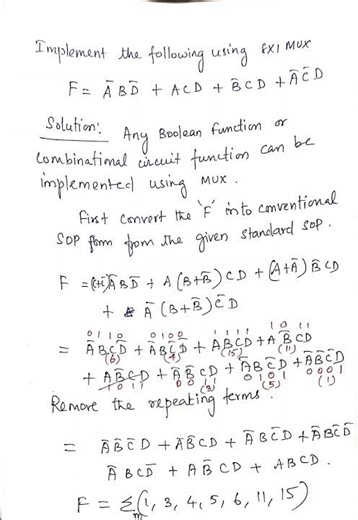 Implement the following using 8x1 MUX
F = ĀBD̄ + ACD + B̄CD + ĀC̄D
Solution: Any Boolean function or
Combinational circuit function can be
implemented using MUX.
First convert the 'F' into conventional
SOP form from the given standard SOP.
F = (C+C̄)ĀBD̄ + A(B+B̄)CD + (A+Ā)B̄CD
+ Ā(B+B̄)C̄D
0110 0100 1111 1011
= ĀBCD̄ + ĀBC̄D̄ + ABCD + AB̄CD
(6) (4) (15) (11)
+ AB̄CD + ĀB̄CD + ĀBC̄D + ĀB̄C̄D
1011 0011 0101 0001
(3) (5) (1)
Remove the repeating terms.
= ĀB̄C̄D + ĀB̄CD + ĀBC̄D̄ + ĀBC̄D
ĀBCD̄ + AB̄CD + ABCD.
F = Σm(1, 3, 4, 5, 6, 11, 15)